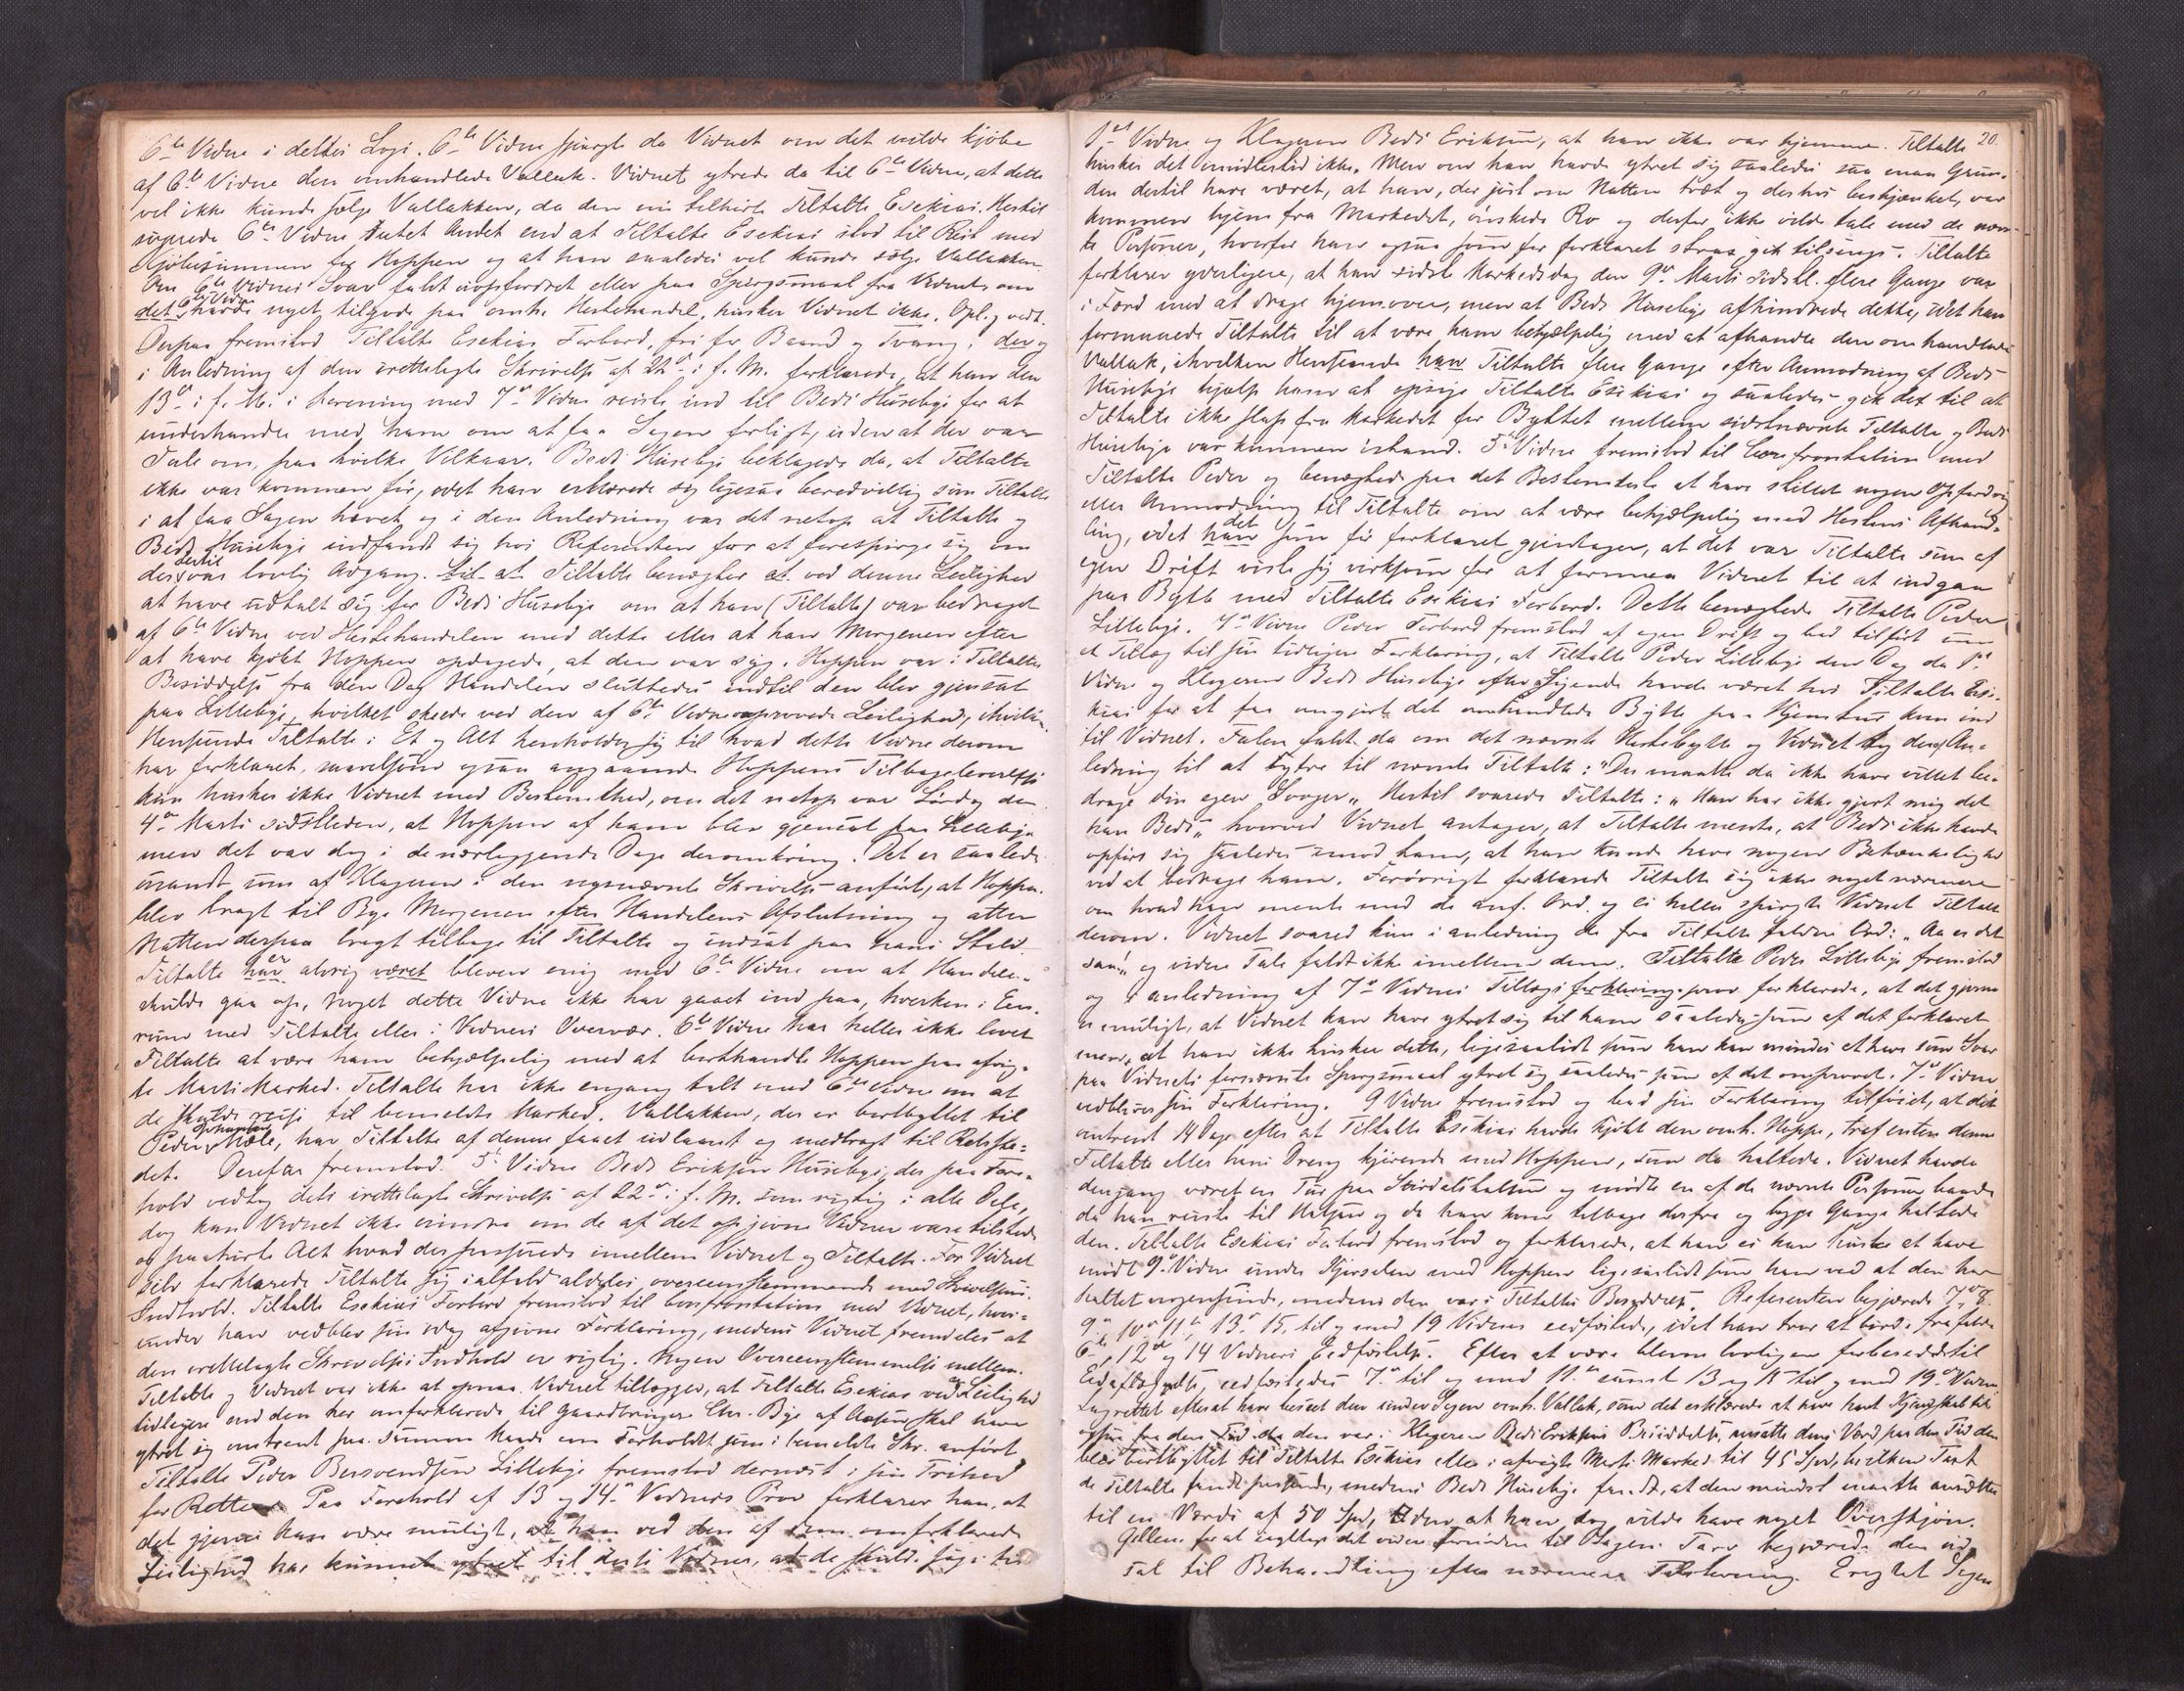 6te Vidne i dettes Logi. 6te Vidne spurgte da Vidnet om det vilde kjøbe
af 6te Vidne den omhandlede Vallak. Vidnet ytrede da til 6te Vidne, at dette
vel ikke kunde sælge Vallakken, da den nu tilhørte Tiltalte Esekias. Hertil
svarede 6te Vidne Andet end at Tiltalte Esekias stod til Rest med
Kjøbesummen for Hoppen og at han saaledes vel kunde sælge Vallakken
Om 6te Vidnes Svar faldt uopfordret eller paa Spørgsmaal fra Vidnet om
det 6te Vidne havde noget tilgode paa omh. Hestehandel, husker Vidnet ikke. Opl. vedt.
Derpaa fremstod Tiltalte Esekias Forbord, fri for Baand og Tvang, der og
i Anledning af den irettelagte Skrivelse af 22de i f. M. forklarede, at han den
13de i f. M. i Forening med 7de Vidne reiste ind til Bedt Huseby for at
underhandle med ham om at faa Sagen forligt, uden at der var
Tale om, paa hvilke Vilkaar. Bedt Huseby beklagede da, at Tiltalte
ikke var kommen før, idet han erklærede sig ligesaa beredvillig som Tiltalte
i at faa Sagen hævet, og i den Anledning var det netop at Tiltalte og
Bedt Huseby indfandt sig hos Referenten for at forespørge sig om
der dertil var lovlig Adgang. til at Tiltalte benægter at ved denne Leilighed
at have udtalt sig for Bedt Huseby om at han (Tiltalte) var bedraget
af 6te Vidne ved Hestehandelen med dette eller at han Morgenen efter
at have kjøbt Hoppen opdagede, at den var syg. Hoppen var i Tiltaltes
Besiddelse fra den Dag Handelen sluttedes indtil den blev gjensat
paa Lilleby, hvilket skeede ved den af 6te Vidne omprovede Leilighed, i hvilken
Henseende Tiltalte i Et og Alt henholder sig til hvad dette Vidne derom
har forklaret, saavelsom ogsaa angaaende Hoppens Tilbageleverelse
kun husker ikke Vidnet med Bestemthed, om det netop var Lørdag den
4de Marts sidstleden, at Hoppen af ham blev gjensat paa Lilleby
men det var dog i de nærliggende Dage deromkring. Det er saaledes
usandt som af Klageren i den nysnævnte Skrivelse anført, at Hoppen
blev bragt til Bye Morgenen efter Handelens Afslutning og atter
Natten derpaa bragt tilbage til Tiltalte og indsat paa hans Stald
Tiltalte har er aldrig været bleven enig med 6te Vidne om at Handelen
skulde gaa op, noget dette Vidne ikke har gaaet ind paa, hverken i Een-
rum med Tiltalte eller i Vidners Overvær. 6te Vidne har heller ikke lovet
Tiltalte at være ham behjælpelig med at borthandle Hoppen paa afvig-
te Marts Marked. Tiltalte har ikke engang talt med 6te Vidne om at
de skulde reise til bemeldte Marked. Vallakken, der er bortbyttet til
Peder Johansen Mæle, har Tiltalte af denne faaet udlaant og medbragt til Retsste-
det. Derefter fremstod 5te Vidne Bedt Eriksen Huseby, der paa Fore-
hold vedtog dets irettelagte Skrivelse af 22de i f. M. som rigtig i alle Dele,
dog kan Vidnet ikke erindre om de af det opgivne Vidner vare tilstede
og paahørte Alt hvad der passerede imellem Vidnet og Tiltalte. For Vidnet
selv forklarede Tiltalte sig ialfald aldeles overeensstemmende med Skrivelsens
Indhold. Tiltalte Esekias Forbord fremstod til Confrontation med Vidnet, hvor-
under han vedblev sin idag afgivne Forklaring, medens Vidnet fremdeles at
den irettelagte Skrivelses Indhold er rigtig. Nogen Overeensstemmelse mellem
Tiltalte og Vidnet var ikke at opnaa. Vidnet tillægger, at Tiltalte Esekias ved en Leilighed
tidligere end den her omforklarede til Gaardbruger Chr. Bye af Aasen skal have
ytret sig omtrent paa samme Maade om Forholdet som i bemeldte Skr. anført.
Tiltalte Peder Bersvendsen Lilleby fremstod dernæst i sin Frihed
for Retten. Paa Forehold af 13 og 14de Vidners Prov forklarer han, at
det gjerne kan være muligt, at han ved den af dem omforklarede
Leilighed har kunnet ytret til dette Vidne, at de skulde sige til
20.
1ste Vidne og Klageren Bedt Eriksen, at han ikke var hjemme. Tiltalte
husker det imidlertid ikke. Men om han havde ytret sig saaledes saa maa Grun-
den dertil have været, at han, der just om Natten træt og desuden beskjænket, var
kommen hjem fra Markedet, ønskede Ro og derfor ikke vilde tale med de nævn-
te Personer, hvorfor han ogsaa som før forklaret strax gik tilsengs. Tiltalte
forklarer yderligere, at han sidste Markedsdag den 9de Marts sidstl. flere Gange var
i Færd med at drage hjemover, men at Bedt Huseby afhindrede dette, idet han
formaaede Tiltalte til at være ham behjælpelig med at afhandle den omhandlede
Vallak, i hvilken Henseende han Tiltalte flere Gange efter Anmodning af Bedt
Huseby hjalp ham at opsøge Tiltalte Esekias og saaledes gik det til at
Tiltalte ikke slap fra Markedet før Byttet mellem sidstnævnte Tiltalte og Bedt
Huseby var kommen istand. 5te Vidne fremstod til Confrontation med
Tiltalte Peder og benægtede paa det Bestemteste at have stillet nogen Opfordring
eller Anmodning til Tiltalte om at være behjælpelig med Hestens Afhand-
ling, idet han det som før forklaret gjentager, at det var Tiltalte som af
egen Drift viste sig virksom for at formaa Vidnet til at indgaa
paa Bytte med Tiltalte Esekias Forbord. Dette benægtede Tiltalte Peder
Lilleby. 7de Vidne Peder Forbord fremstod af egen Drift og bad tilført som
et Tillæg til sin tidligere Forklaring, at Tiltalte Peder Lilleby den Dag da 1ste
Vidne og Klageren Bedt Huseby efter Sigende havde været hos Tiltalte Ese-
kias for at faa omgjort det omhandlede Bytte paa Hjemtur kom ind
til Vidnet. Talen faldt da om det nævnte Hestebytte og Vidnet tog deraf An-
ledning til at ytre til nævnte Tiltalte: "Du maatte da ikke have villet be-
drage din egen Svoger" Hertil svarede Tiltalte: "Han har ikke gjort mig det
han Bedt" hvorved Vidnet antager, at Tiltalte mente, at Bedt ikke havde
opført sig saaledes imod ham, at han kunde have nogen Betænkelighed
ved at bedrage ham. Forøvrigt forklarede Tiltalte sig ikke noget nærmere
om hvad han mente med de anf. Ord og ei heller spurgte Vidnet Tiltalte
derom. Vidnet svared kun i anledning de fra Tiltalte faldne Ord: "Aa er det
saa!" og videre Tale faldt ikke imellem dem. Tiltalte Peder Lilleby fremstod
og i anledning af 7de Vidnes Tillægs forklaring prov forklarede, at det gjerne
er muligt, at Vidnet kan have ytret sig til ham saaledes som af det forklaret
men, at han ikke husker dette, ligesaalidt som han kan mindes at have som Svar
paa Vidnets fornævnte Spørgsmaal ytret sig saaledes som af det omprovet. 7de Vidne
vedblev sin Forklaring. 9 Vidne fremstod og bad sin Forklaring tilføiet, at det
omtrent 14 Dage efter at Tiltalte Esekias havde kjøbt den omh. Hoppe, traf enten denne
Tiltalte eller hans Dreng kjørende med Hoppen, som da haltede. Vidnet havde
dengang været en Tur paa Stjørdalshalsen og mødte en af de nævnte Personer baade
da han reiste til Halsen og da han kom tilbage derfra og begge Gange haltede
den. Tiltalte Esekias Forbord fremstod og forklarede, at han ei kan huske at have
mødt 9de Vidne under Kjørselen med Hoppen ligesaalidt som han ved at den har
haltet nogensinde, medens den var i Tiltaltes Besiddelse. Referenten begjærede 7de 8
9de 10de 11te 13de 15 til og med 19 Vidnes eedfæstede, idet han tror at burde frafalde
6te, 12te og 14 Vidners Eedfæstelse. Efter at være bleven lovligen forberedede til
Eedsaflæggelse, eedfæstedes 7de til og med 11te samt 13 og 15 til og med 19de Vidne.
Lagrettet efterat have beseet den under Sagen omh. Vallak, som det erklærede at have havt Kjendskab til
ogsaa fra den Tid da den var i Klageren Bedt Eriksens Besiddelse, ansatte dens Værd paa den Tid den
blev bortbyttet til Tiltalte Esekias eller i afvigte Marts Marked til 45 Spd, hvilken Taxt
de Tiltalte fandt passende, medens Bedt Huseby fandt, at den mindst maatte ansættes
til en Værdi af 50 Spd, uden at han dog vilde have noget Overskjøn.
for at iagttage det videre Fornødne til Sagens Tarv begjærede den ud-
sat til Behandling efter nærmere Tilstevning. Eragtet Sagen